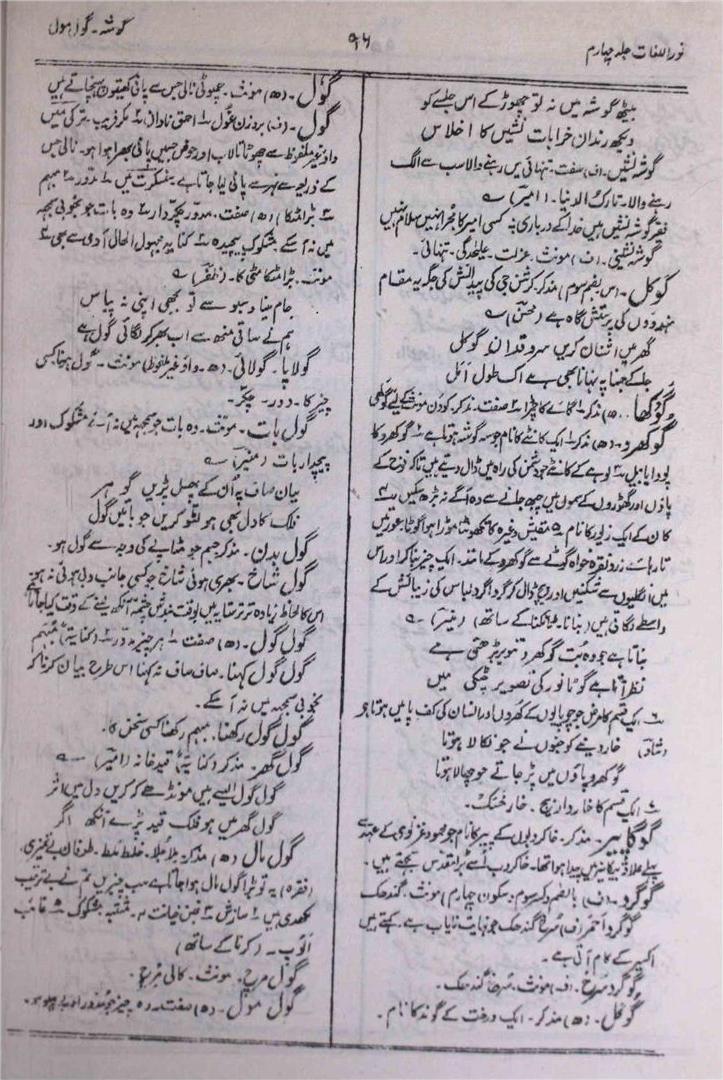 نوراللغات جلد چہارم
۹۶
گوشہ۔ گول مول
بیٹھ گوشہ میں نہ تو چھوڑ کے اس جلسے کو
دیکھ رندان خرابات نشیں کا اخلاس
گوشہ نشیں۔ (ف) صفت۔ تنہائی میں رہنے والا سب سے الگ
رہنے والا۔ تارک الدنیا۔ (امیر) ؎
فقر گوشہ نشیں ہیں خدا کے درباری پہ کسی امیر کا مجرا نہیں سلام نہیں
گوشہ نشینی۔ (ف) مونث۔ عزلت۔ علٰحدگی۔ تنہائی۔
گوکل۔ (س بضم سوم) مذکر۔ کرشن جی کی پیدائش کی جگہ یہ مقام
ہندووں کی پرستش گاہ ہے (محسن) ؎
گھر میں اشنان کریں سروقدان گوکل
جا کے جمنا پہ نہانا بھی ہے اک طول امل
گوکھا۔ (ھ) مذکر۔ گائے کا چمڑا ۲ صفت۔ مذکر۔ کودن مونث کے لیے گوکھی
گوکھرو۔ (ھ) مذکر ۱ ایک کانٹے کا نام جو سہ گوشہ ہوتا ہے ۲ گوکھرو کا
پودا یا بیل ۳ لوہے کے کانٹے جو دشمن کی راہ میں ڈال دیتے ہیں تاکہ فوج کے
پاؤں اور گھوڑوں کے سموں میں چبھ جانے سے وہ آگے نہ بڑھ سکیں ۴
کان کے ایک زیور کا نام ۵ مقیش وغیرہ کا مڑا ہوا گوٹا عورتیں
تار ہائے زر و نقرہ خواہ گوٹے سے گوکھرو کے مانند۔ ایک چیز بنا کر اور اس
میں انگلیوں سے شکنیں اور پیچ ڈال کر گرداگرد لباس کی زیبائش کے
واسطے لگاتی ہیں (بنانا۔ ٹانکنا کے ساتھ) (منیر) ؎
بناتا ہے جو وہ بت گوکھرو تنویر بڑھتی ہے
نظر آتا ہے گوٹا نور کی تصویر چٹکی میں
۶ ایک قسم کا مرض جو چوپایوں کے کھروں اور انسان کی کف پا میں ہوتا ہے
(شاد) خار دینے کو جنوں نے جو نکالا ہوتا
گوکھرو پاؤں میں پڑ جاتے جو چھالا ہوتا
۷ ایک قسم کا خاردار بیج۔ خار خسک۔
گوگا پیر۔ مذکر۔ خاکروبوں کے پیر کا نام جو محمود غزنوی کے عہد سے
پہلے علاقہ بیکانیر میں پیدا ہوا تھا۔ خاکروب اسے بڑا مقدس سمجھتے ہیں۔
گوگرد۔ (ف) بالضم و کسر سوم۔ سکون چہارم) مونث۔ گندھک
گوگرد احمر (ف) سرخ گندھک جو نہایت نایاب ہے۔ کہتے ہیں
اکسیر کے کام آتی ہے۔
گوگرد سرخ۔ (ف) مونث۔ سرخ گندھک۔
گوگل۔ (ھ) مذکر۔ ایک درخت کے گوند کا نام۔
گول۔ (ھ) مونث۔ چھوٹی نالی جس سے پانی کھیتوں میں پہنچاتے ہیں
گول۔ (ف) بروزن غول ۱ احمق نادان ۲ مکر فریب۔ ترکی میں
واو غیر ملفوظ سے چھوٹا تالاب اور حوض جس میں پانی بھرا ہوا ہو۔ نالی جس
کے ذریعہ سے نہر سے پانی لیا جاتا ہے۔ سنسکرت میں ۱ مدور ۲ مبہم
۳ بڑا مٹکا) (ھ) صفت۔ مدور چکر دار ۲ وہ بات جو بخوبی سمجھ
میں نہ آ سکے مشکوک پیچیدہ ۳ کنایہ مجہول الحال آدمی سے بھی ۴
مونث۔ بڑا مٹکا مٹی کا۔ (ظفر) ؎
جام مینا و سبو سے تو بجھی اپنی نہ پیاس
ہم نے ساقی منھ سے اب بھر کر لگائی گول ہے
گولاپا۔ گولائی۔ (ھ۔ واو غیر ملفوظ) مونث۔ گول ہونا کسی
چیز کا۔ دور۔ چکر۔
گول بات۔ مونث۔ وہ بات جو سمجھ میں نہ آئے مشکوک اور
پیچدار بات (منیر) ؎
بیان صاف پہ ان کے پھسل پڑیں گوہر
فلک کا دل بھی ہو لٹو کریں جو باتیں گول
گول بدن۔ مذکر جسم جو مٹاپے کی وجہ سے گول ہو۔
گول شاخ۔ بھری ہوئی شاخ جو کسی جانب دبی ہوئی نہ ہو
اس کا لحاظ زیادہ تر
گول گول۔ (ھ) صفت ۱ ہر چیز مدور ۲ (کنایۃً) مبہم
گول گول کہنا۔ صاف صاف نہ کہنا اس طرح بیان کرنا کہ
بخوبی سمجھ میں نہ آ سکے۔
گول گول رکھنا۔ مبہم رکھنا کسی سخن کا۔
گول گھر۔ مذکر (کنایۃً) قید خانہ (امیر) ؎
گول گول ایسے ہیں مونڈھے کہ کریں دل میں اثر
گول گھر میں ہو فلک قید پڑے آنکھ اگر
گول مال (ھ) مذکر ۱ ملا جلا۔ خلط ملط۔ طوفان بے تمیزی۔
(فقرہ) یہ تو بڑا گول مال ہوا جاتا ہے سب چیزیں تم نے بے ترتیب
رکھدی ہیں ۲ سازش ۳ غبن خیانت ۴ مشتبہ مشکوک ۵ غائب
(کرنا کے ساتھ)
گول مرچ۔ مونث۔ کالی مرچ۔
گول مول۔ (ھ) صفت۔ وہ چیز جو مدور اور بے پہلو ہو۔